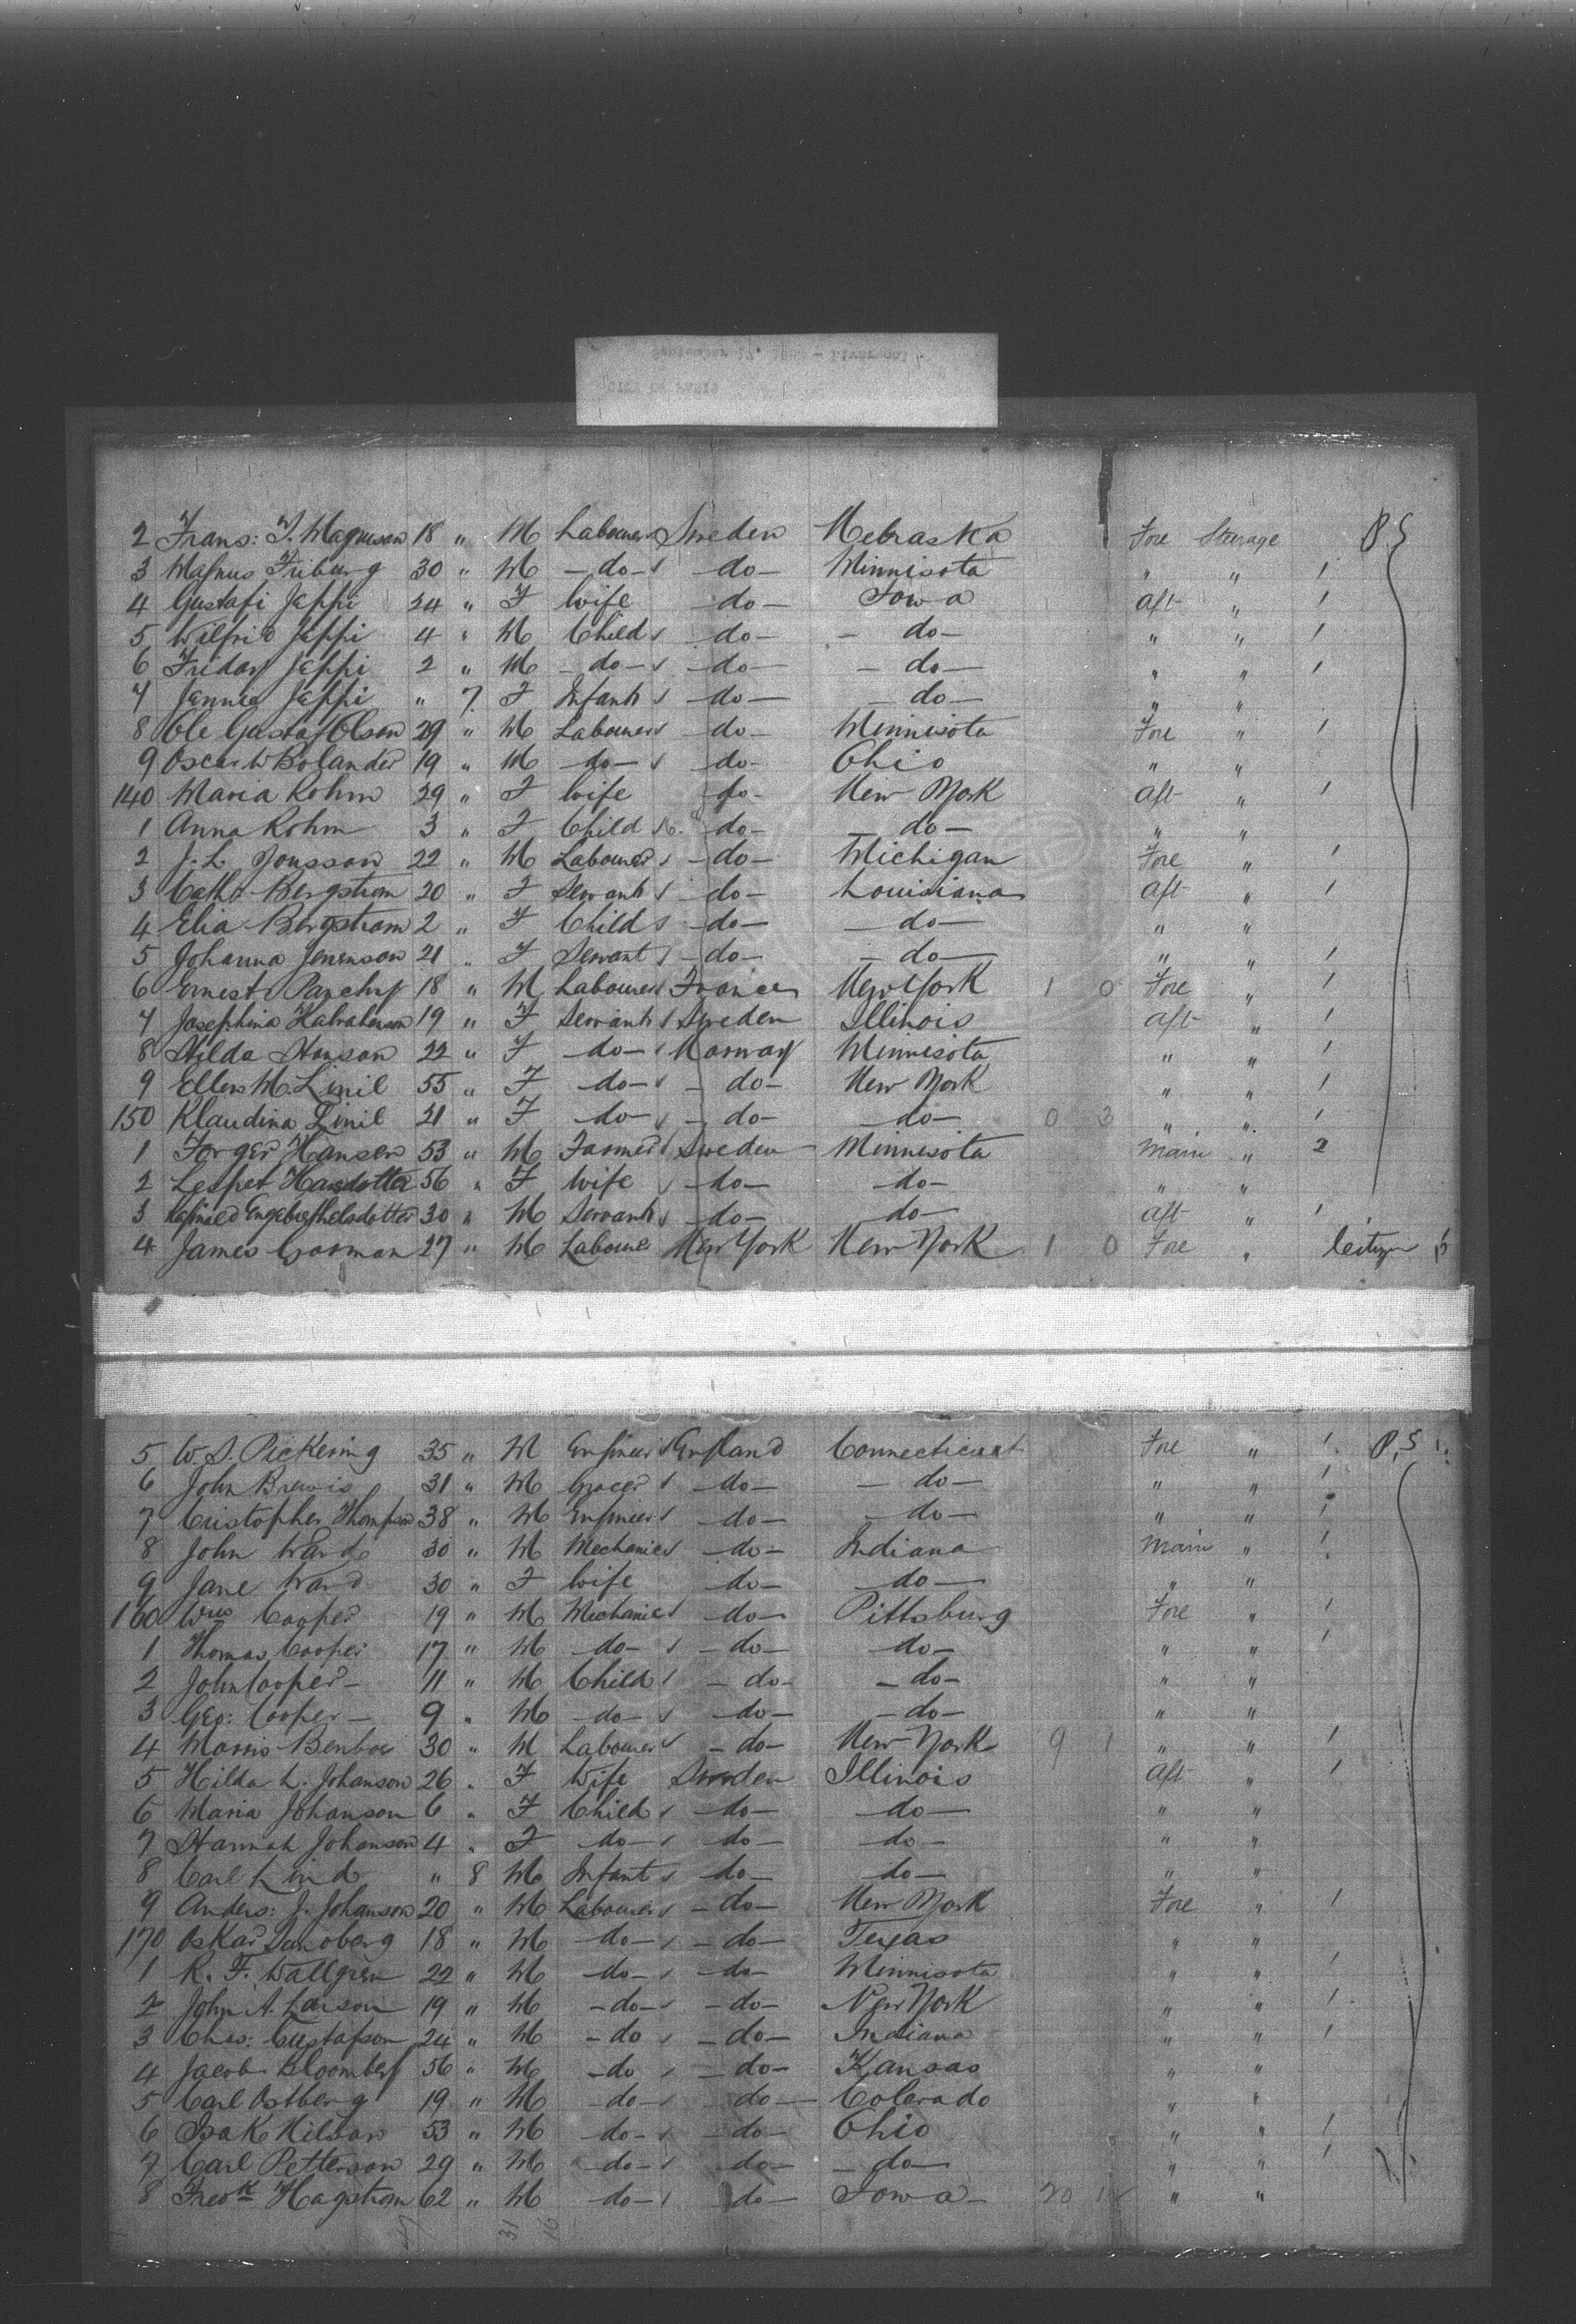 2 Frans: T. Magnuson 18 " M Labourer Sweden Nebraska Fore Steerage P.S
3 Magnus Friburg 30 " M - do - - do - Minnisota " " 1
4 Gustafi Jeppi 24 " F Wife - do - Iowa Aft " 1
5 Wilfrid Jeppi 4 " M Child - do - - do - " " 1
6 Fridof Jeppi 2 " M - do - - do - - do - " " 1
7 Jennie Jeppi " 7 F Infant - do - - do - " "
8 Ole Gustaf Olson 29 " M Labourer - do - Minnisota Fore " 1
9 Oscar W Bolander 19 " M - do - - do - Ohio " "
140 Maria Rohm 29 " F Wife - do - New York Aft " 1
1 Anna Rohm 3 " F Child - do - - do - " "
2 J. L. Jonsson 22 " M Labourer - do - Michigan Fore " 1
3 Catha Bergstrom 20 " F Servant - do - Louisiana Aft " 1
4 Elia Bergstrom 2 " F Child - do - - do - " "
5 Johanna Jenenson 21 " F Servant - do - - do - " " 1
6 Ernest 18 " M Labourer France New York 1 0 Fore " 1
7 Josephina 19 " F Servant Sweden Illinois Aft " 1
8 Hilda Hanson 22 " F - do - Norway Minnisota " " 1
9 Ellen M. Linil 55 " F - do - - do - New York " " 1
150 Klaudina Linil 21 " F - do - - do - - do - 0 3 " " 1
1 Forger Hansen 53 " M Farmer Sweden Minnisota Main " 2
2 Lespet Hansdotter 56 " F Wife - do - - do - " "
3 30 " M Servant - do - - do - Aft " 1
4 James Gorman 27 " M Laboure New York New York 1 0 Fore " Citizen
5 W. S. Pickering 35 " M Engineer England Connecticut Fore " 1 P.S
6 John Brewis 31 " M Grocer - do - - do - " " 1
7 Cristopher Thompson 38 " M Engineer - do - - do - " " 1
8 John Ward 30 " M Mechanic - do - Indiana Main " 1
9 Jane Ward 30 " F Wife - do - - do - " "
160 Wm Cooper 19 " M Mechanic - do - Pittsburg Fore " 1
1 Thomas Cooper 17 " M - do - - do - - do - " " 1
2 John Cooper - 11 " M Child - do - - do - " "
3 Geo: Cooper - 9 " M - do - - do - - do - " "
4 Morris 30 " M Labourer - do - New York 9 1 " " 1
5 Hilda L. Johanson 26 " F Wife Sweden Illinois Aft " 1
6 Maria Johanson 6 " F Child - do - - do - " "
7 Hannah Johanson 4 " F - do - - do - - do - " "
8 Carl Lind " 8 M Infant - do - - do - " "
9 Anders: J. Johanson 20 " M Labourer - do - New York Fore " 1
170 Oskar Sandberg 18 " M - do - - do - Texas " "
1 K. F. Wallgren 22 " M - do - - do - Minnisota " " 1
2 John A. Larson 19 " M - do - - do - New York " " 1
3 Chas: Gustafson 24 " M - do - - do - Indiana " " 1
4 Jacob Bloomberg 56 " M - do - - do - Kansas " "
5 Carl Ostberg 19 " M - do - - do - Colerado " "
6 Isak Nilson 53 " M - do - - do - Ohio " " 1
7 Carl Petterson 29 " M - do - - do - - do - " " 1
8 Fredk Hagstrom 62 " M - do - - do - Iowa - 20 " "
31 16